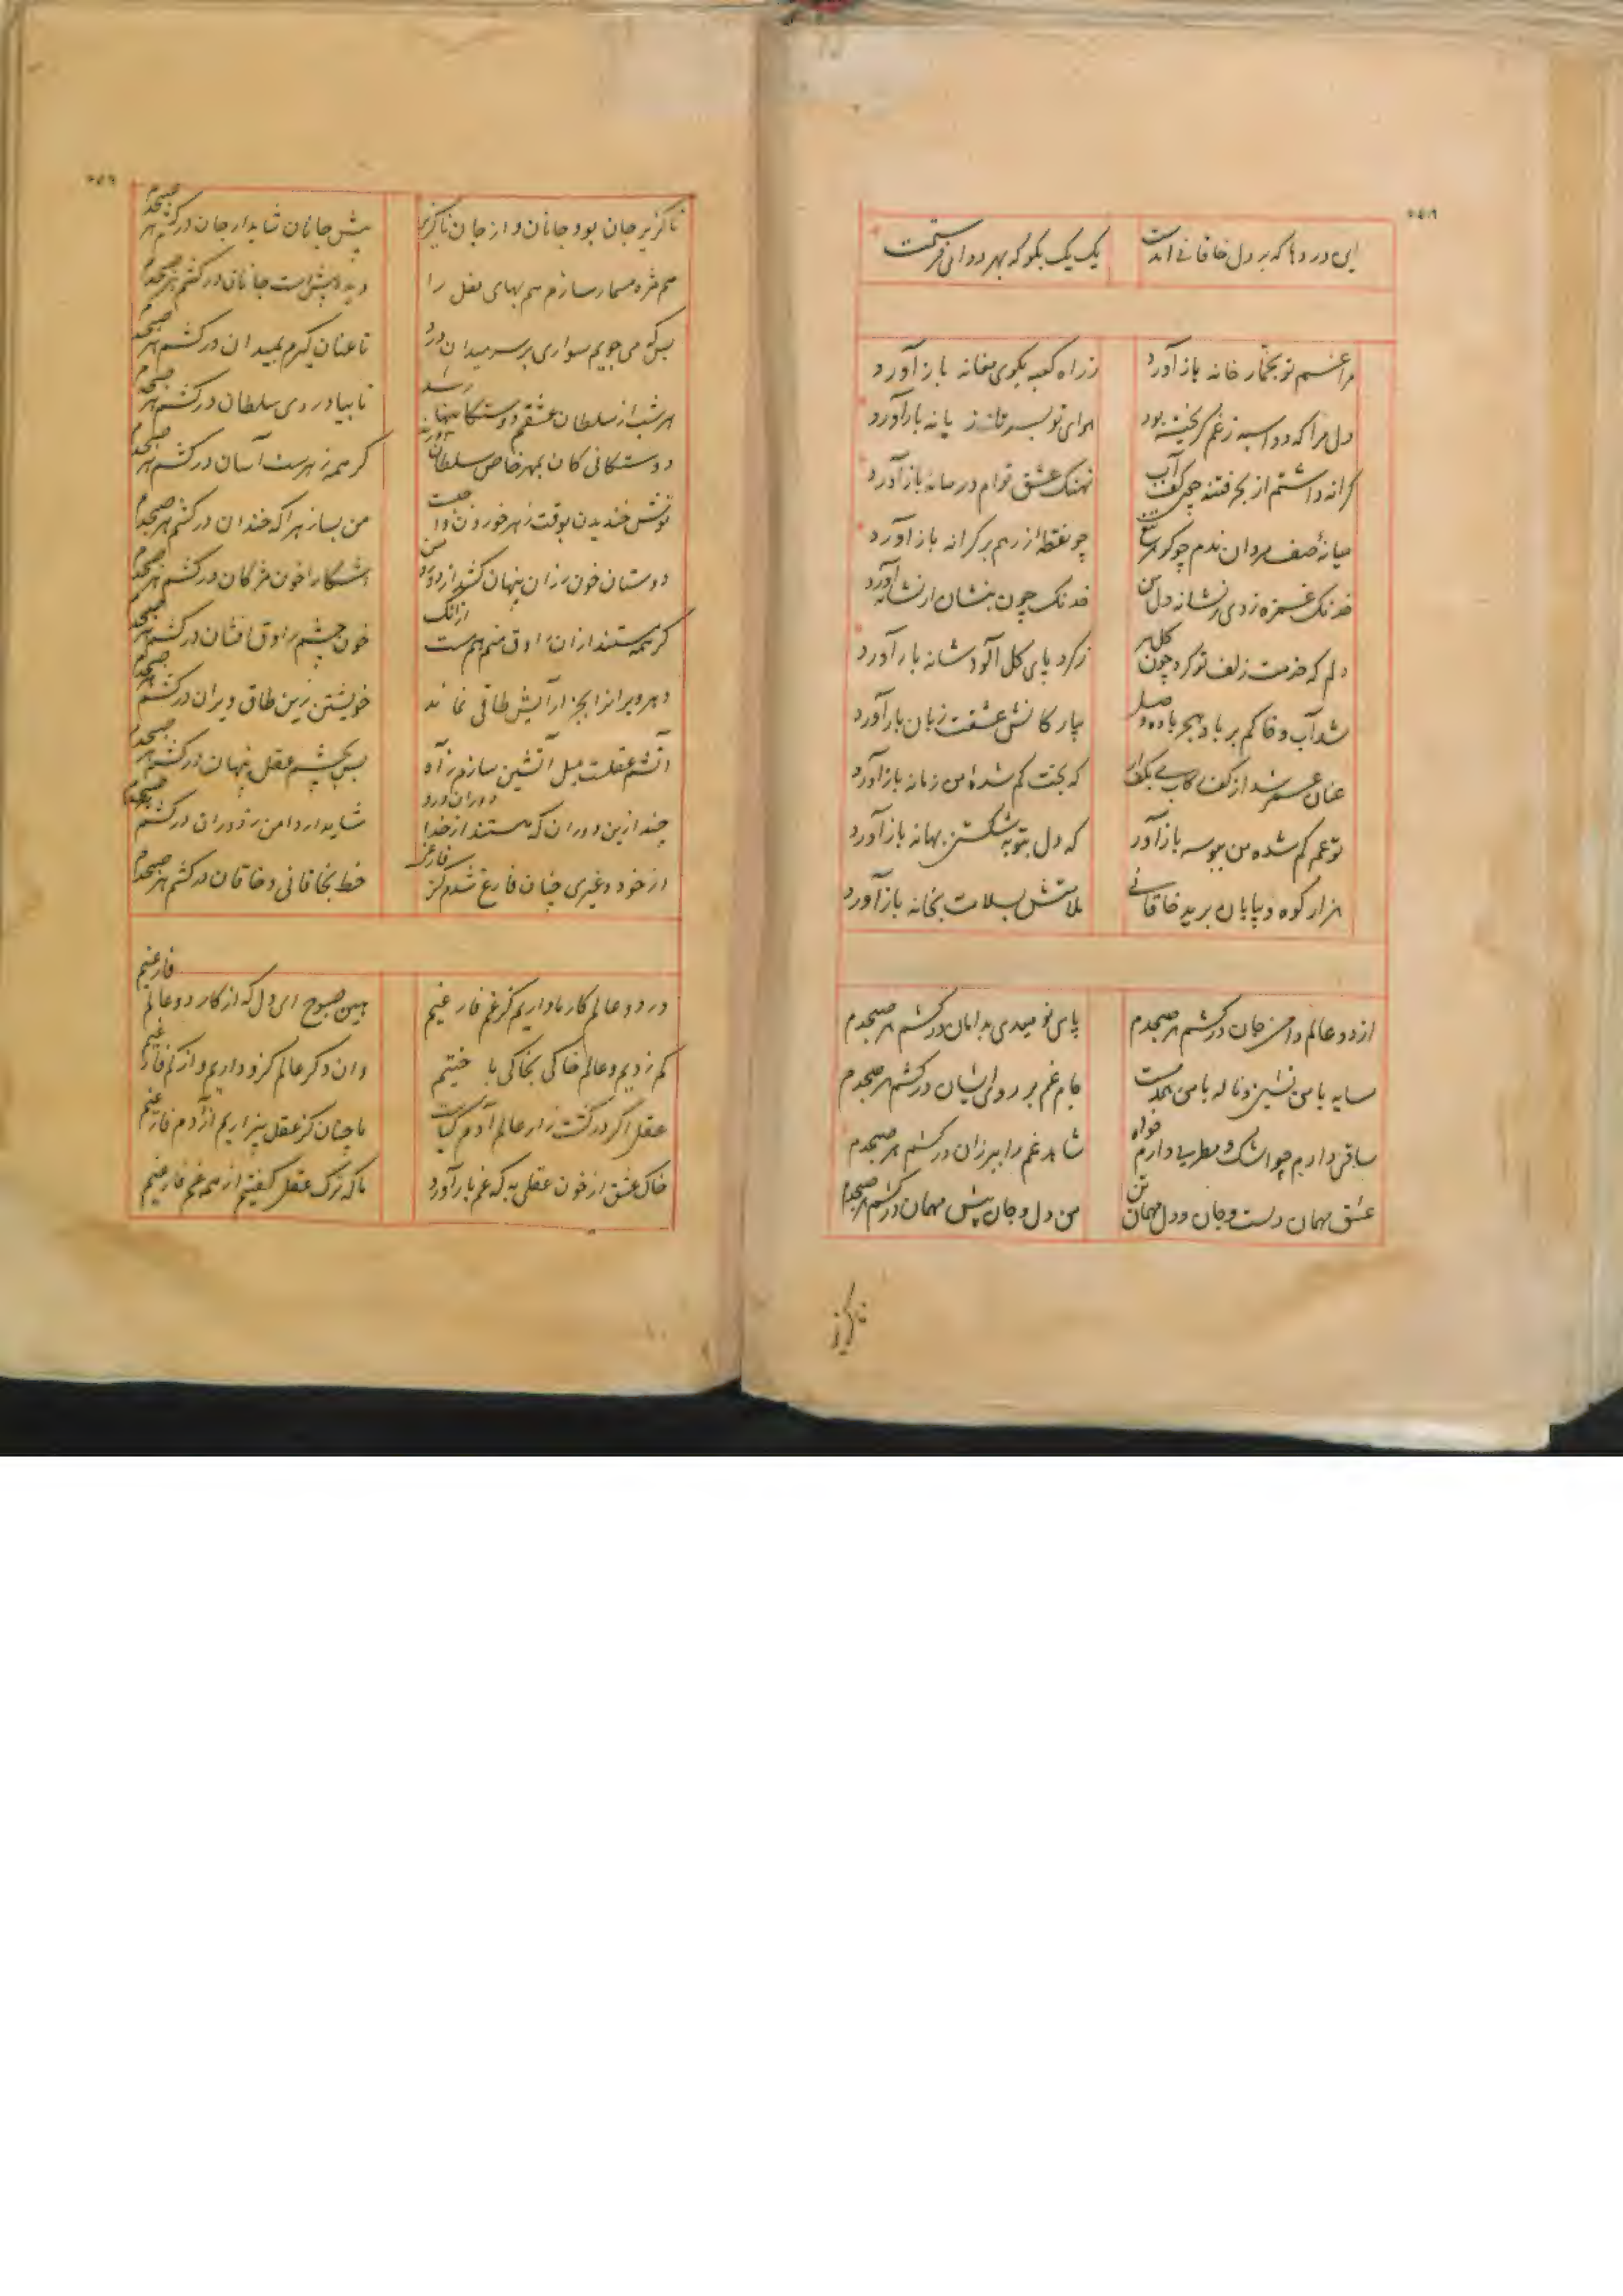 این دردها که بر دل خاقانی آمدست
یک یک بگو که بهر دوای فرست
مرا غم تو بخمار خانه باز آورد
ز راه کعبه بکوی مغانه باز آورد
دل مرا که دو اسبه ز غم گریخته بود
هوای تو بسر تازیانه باز آورد
کرانه داشتم از بحر فتنه چون کف آب
نهنگ عشق توام در میانه باز آورد
میانه صف مردان بدم چو گوهر تیغ
چو نقطه زرهم بر کرانه باز آورد
خدنگ غمزه زدی بر نشانه دل من
خدنگ چون بنشان از نشانه آورد
دلم که خدمت زلف تو کرد چون گل سر
ز کرد پای گل آلود شانه باز آورد
شد آب و خاکم بر باد هجر باده وصل
بیار کاتش عشقت زبانه باز آورد
عنان عمر شد از کف رکاب می بکف آر
که بخت گم شده من زمانه باز آورد
تو عمر گم شده من ببوسه باز آور
که دل بتوبه شکستن بهانه باز آورد
هزار کوه و بیابان برید خاقانی
سلامتش بسلامت بخانه باز آورد
از دو عالم دامن جان درکشم هر صبحدم
پای نومیدی بدامان درکشم هر صبحدم
سایه با من همنشین و ناله با من همدمست
جام غم بر روی ایشان درکشم هر صبحدم
ساقی دارم چو اشک و مطربی دارم چو آه
شاهد غم را ببر زان درکشم هر صبحدم
عشق مهمان دلست و جان و دل مهمان تن
من دل و جان پیش مهمان درکشم هر صبحدم
ناگزیر
ناگزیر جان بود جانان و از جان ناگزیر
پیش جانان شاید ار جان درکشم هر صبحدم
هم مژه مسمار سازم هم بهای نعل را
دیده پیش اسب جانان درکشم هر صبحدم
بس که می جویم سواری بر سر میدان درد
تا عنان گیرم بمیدان درکشم هر صبحدم
هر شب از سلطان عشقم دوستگانیها رسد
تا بیاد روی سلطان درکشم هر صبحدم
دوستگانی کان بمهر خاص سلطان آورند
گر همه زهرست آسان درکشم هر صبحدم
نوش خندیدن بوقت زهر خوردن واجبست
من بسا زهرا که خندان درکشم هر صبحدم
دوستان خون رزان پنهان کشند از دور و من
آشکارا خون مژگان درکشم هر صبحدم
گر همه مستند از آن راوق منم هم مست از آنک
خون چشم راوق افشان درکشم هر صبحدم
دهر ویرانرا بجز آرایش طاقی نماند
خویشتن زین طاق ویران درکشم هر صبحدم
آتشم عقلست میل آتشین سازم ز آه
پس بچشم عقل پنهان درکشم هر صبحدم
چند ازین دوران که هستند از خدا دوران درو
شاید ار دامن ز دوران درکشم هر صبحدم
از خود و غیری چنان فارغ شدم کز فارغی
خط بخاقانی و خاقان درکشم هر صبحدم
در دو عالم کار ما داریم کز غم فارغیم
هین صبوح ای دل که از کار دو عالم فارغیم
کم زدیم و عالم خاکی بخاکی باختیم
وان دگر عالم گرو داریم و از کم فارغیم
عقل اگر در کشت زار عالم آدم کیاست
ما چنان کز عقل بیزاریم از آدم فارغیم
خاک عشق از خون عقلی به که غم بار آورد
ما که ترک عقل گفتیم از همه غم فارغیم